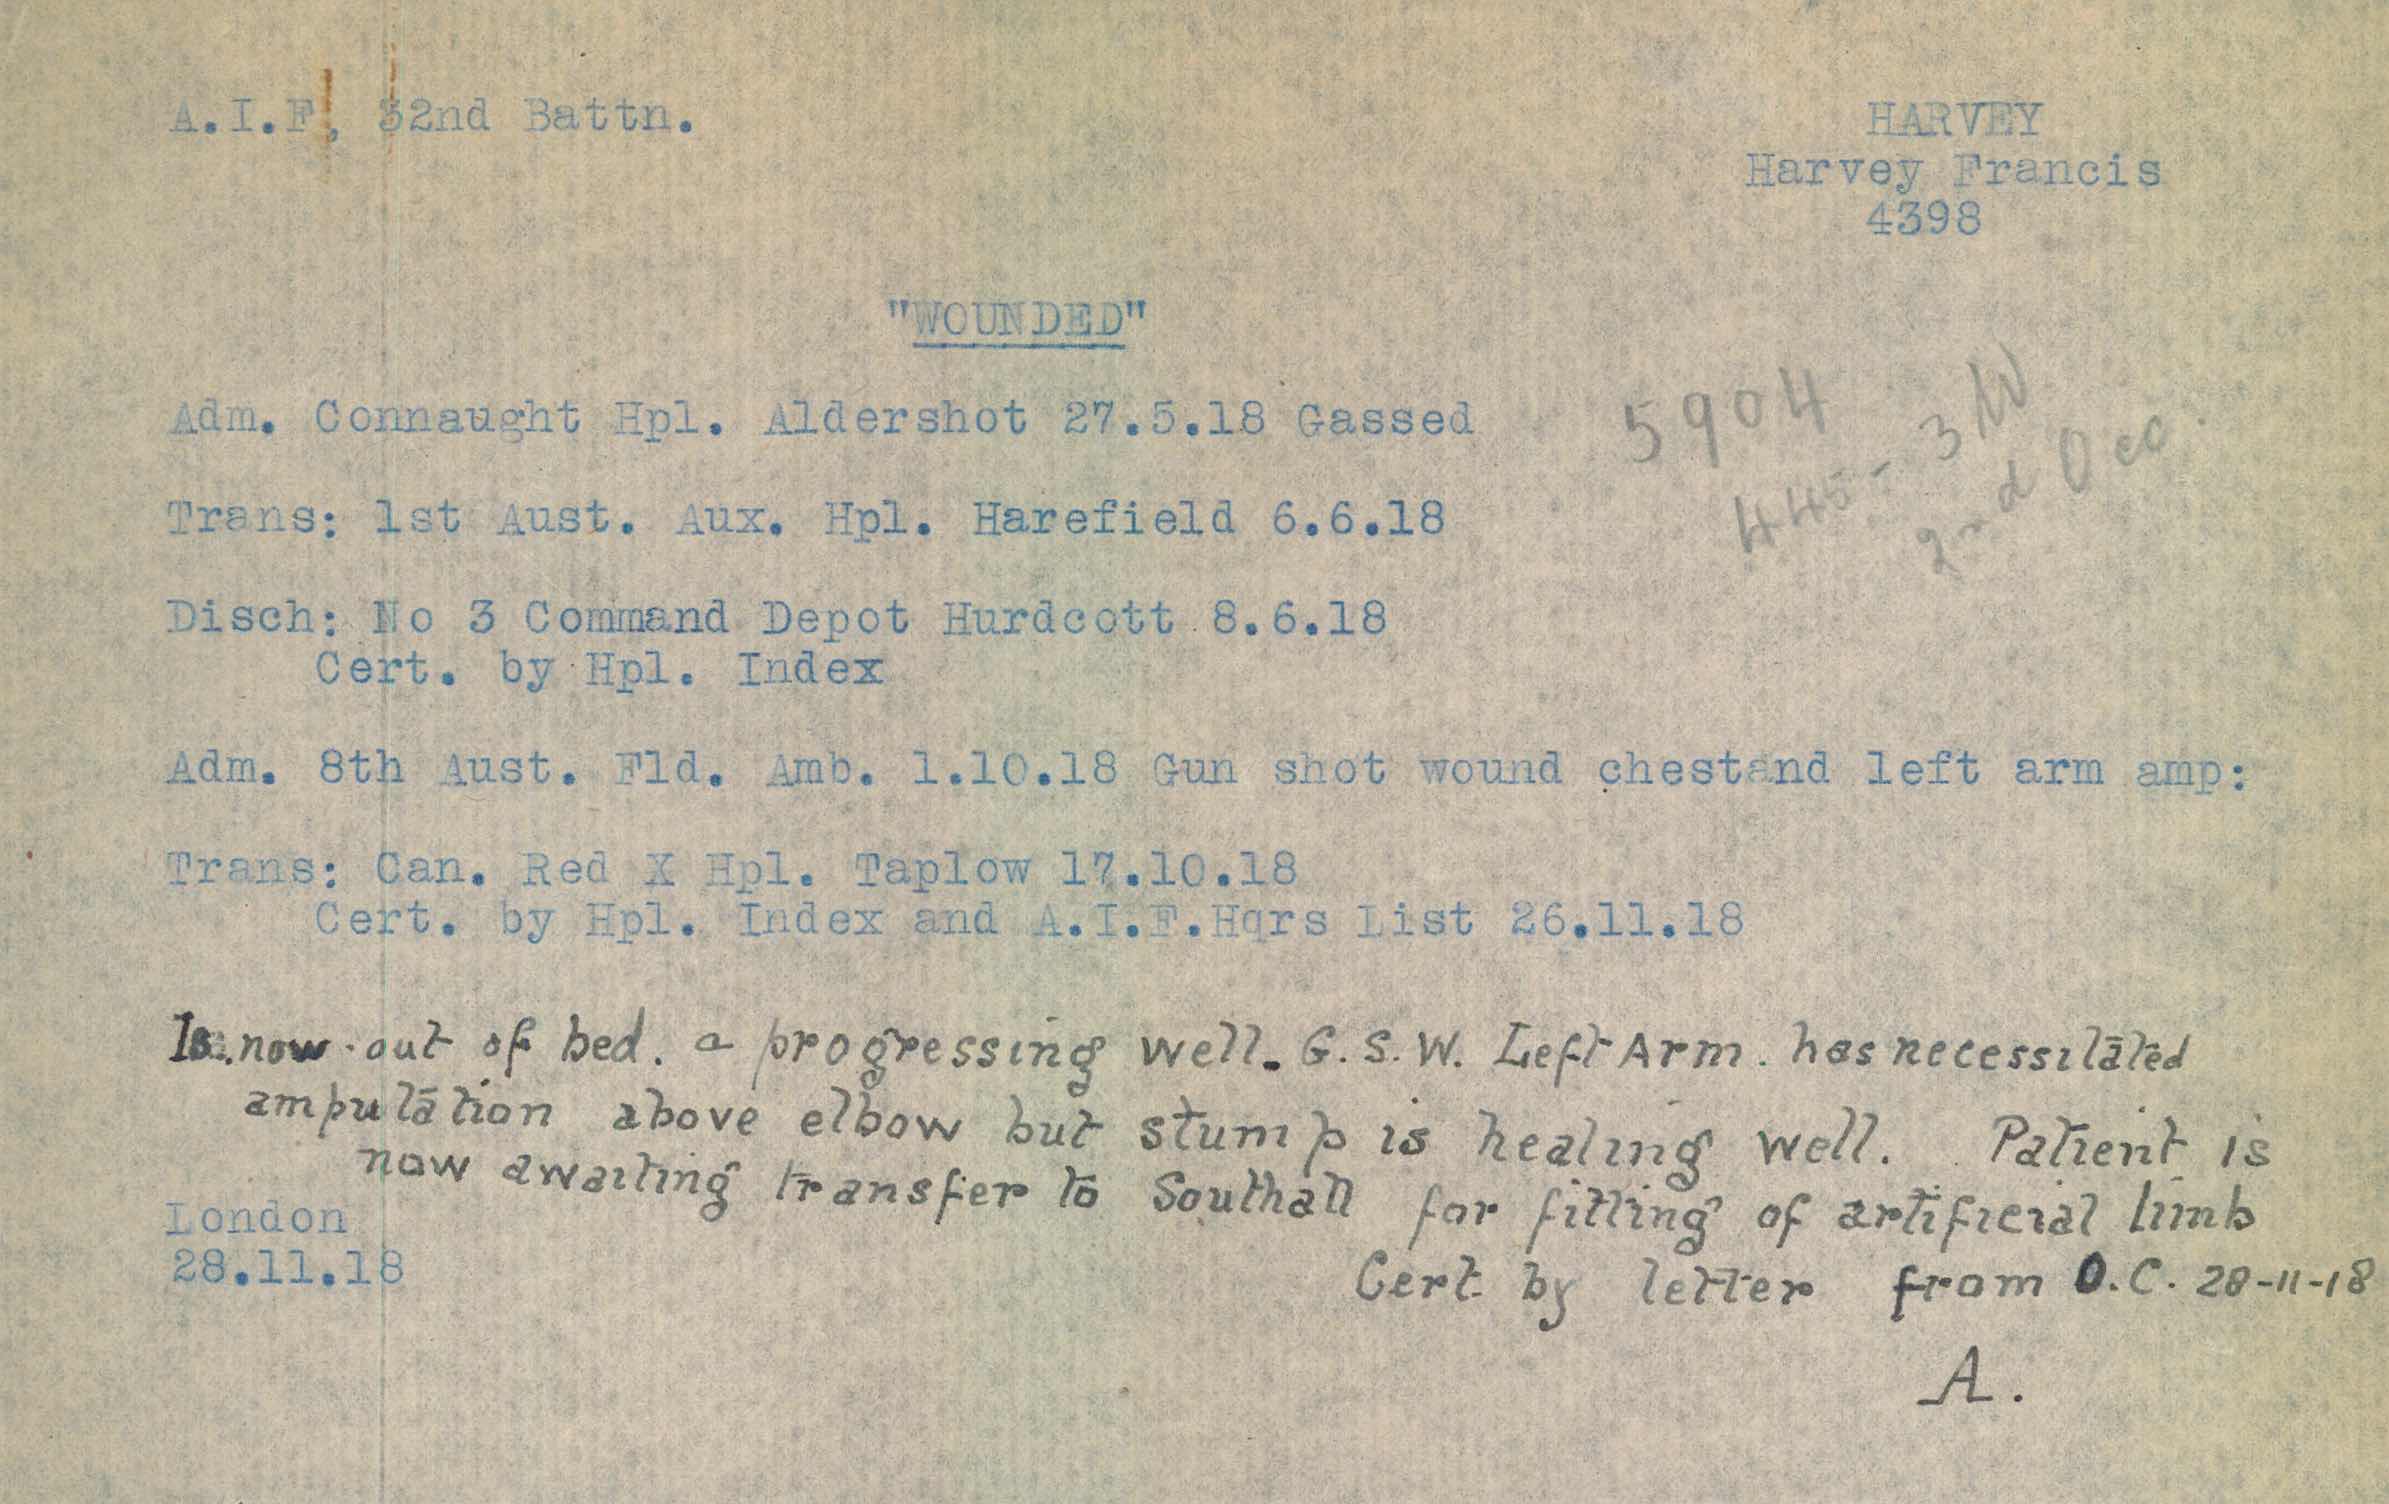 A.I.F, 32nd Battn.
HARVEY
Harvey Francis
4398
"WOUNDED"
Adm. Connaught Hpl. Aldershot 27.5.18 Gassed
5904
445 - 3 W
2nd Occ.
Trans: 1st Aust. Aux. Hpl. Harefield 6.6.18
Disch: No 3 Command Depot Hurdcott 8.6.18
Cert. by Hpl. Index
Adm. 8th Aust. Fld. Amb. 1.10.18 Gun shot wound chestand left arm amp:
Trans: Can. Red X Hpl. Taplow 17.10.18
Cert. by Hpl. Index and A.I.F.Hqrs List 26.11.18
Is now out of bed. a progressing well. G.S.W. Left Arm. has necessitated
amputation above elbow but stump is healing well. Patient is
now awaiting transfer to Southall for fitting of artificial limb
Cert by letter from O.C. 28-11-18
A.
London
28.11.18